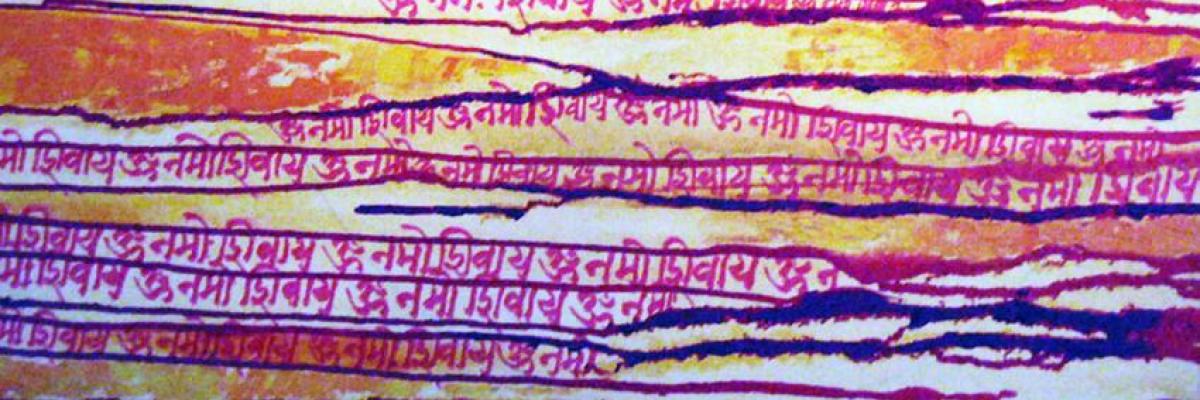 ॐ नमः शिवाय ॐ नमः शिवाय ॐ नमः
ॐ नमो शिवाय ॐ नमो शिवाय ॐ नमो ॐ नमो शिवाय ॐ नमो शिवाय ॐ नमो
मो शिवाय ॐ नमो शिवाय ॐ नमो ॐ नमो शिवाय ॐ नमो शिवाय ॐ नमो शिवाय ॐ नमो शिवाय
शिवाय ॐ नमो शिवाय ॐ नमो शिवाय ॐ नमो शिवाय ॐ न
मो शिवाय ॐ नमो शिवाय ॐ नमो शिवाय ॐ नमो
मो शिवाय ॐ नमो शिवाय ॐ नमो शिवाय ॐ नमो